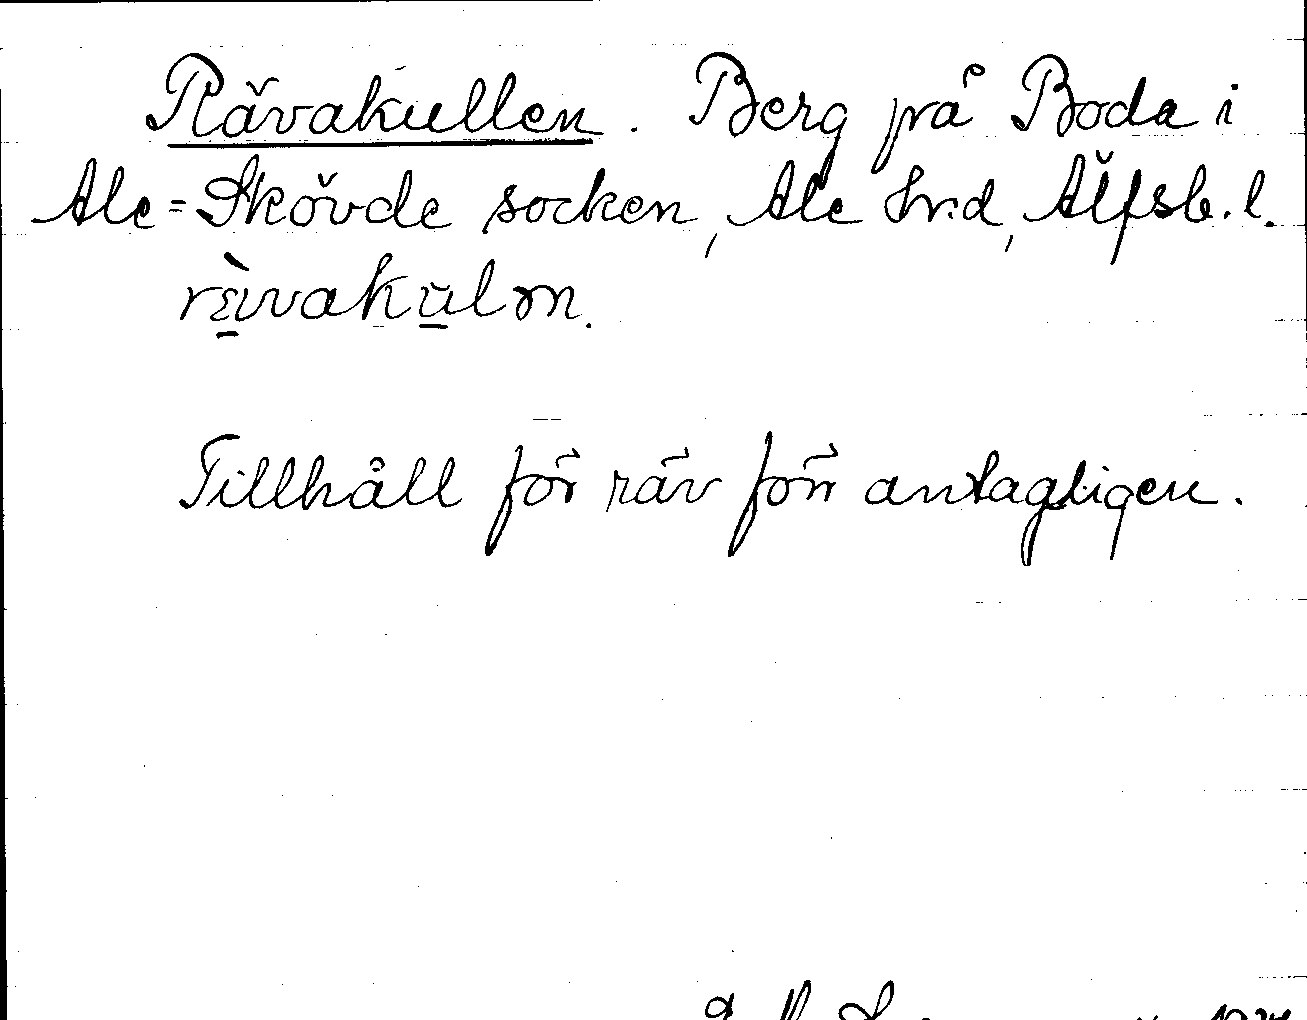 Rävakullen. Berg på Boda i
Ale=Skövde socken, Ale hrd, Älfsb. l.
Tillhåll för räv förr antagligen.